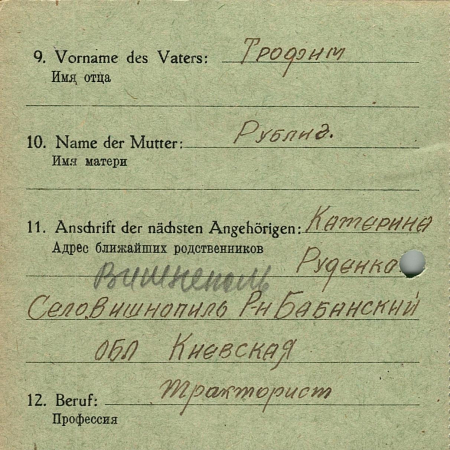 9. Vorname des Vaters: Трофим
Имя отца
10. Name der Mutter: Рублид.
Имя матери
11. Anschrift der nächsten Angehörigen: Катарина
Адрес ближайших родственников Руденко
Вишнеполь
Село Вишнопиль Р-н Бабанский
обл Киевская
12. Beruf: тракторист
Профессия